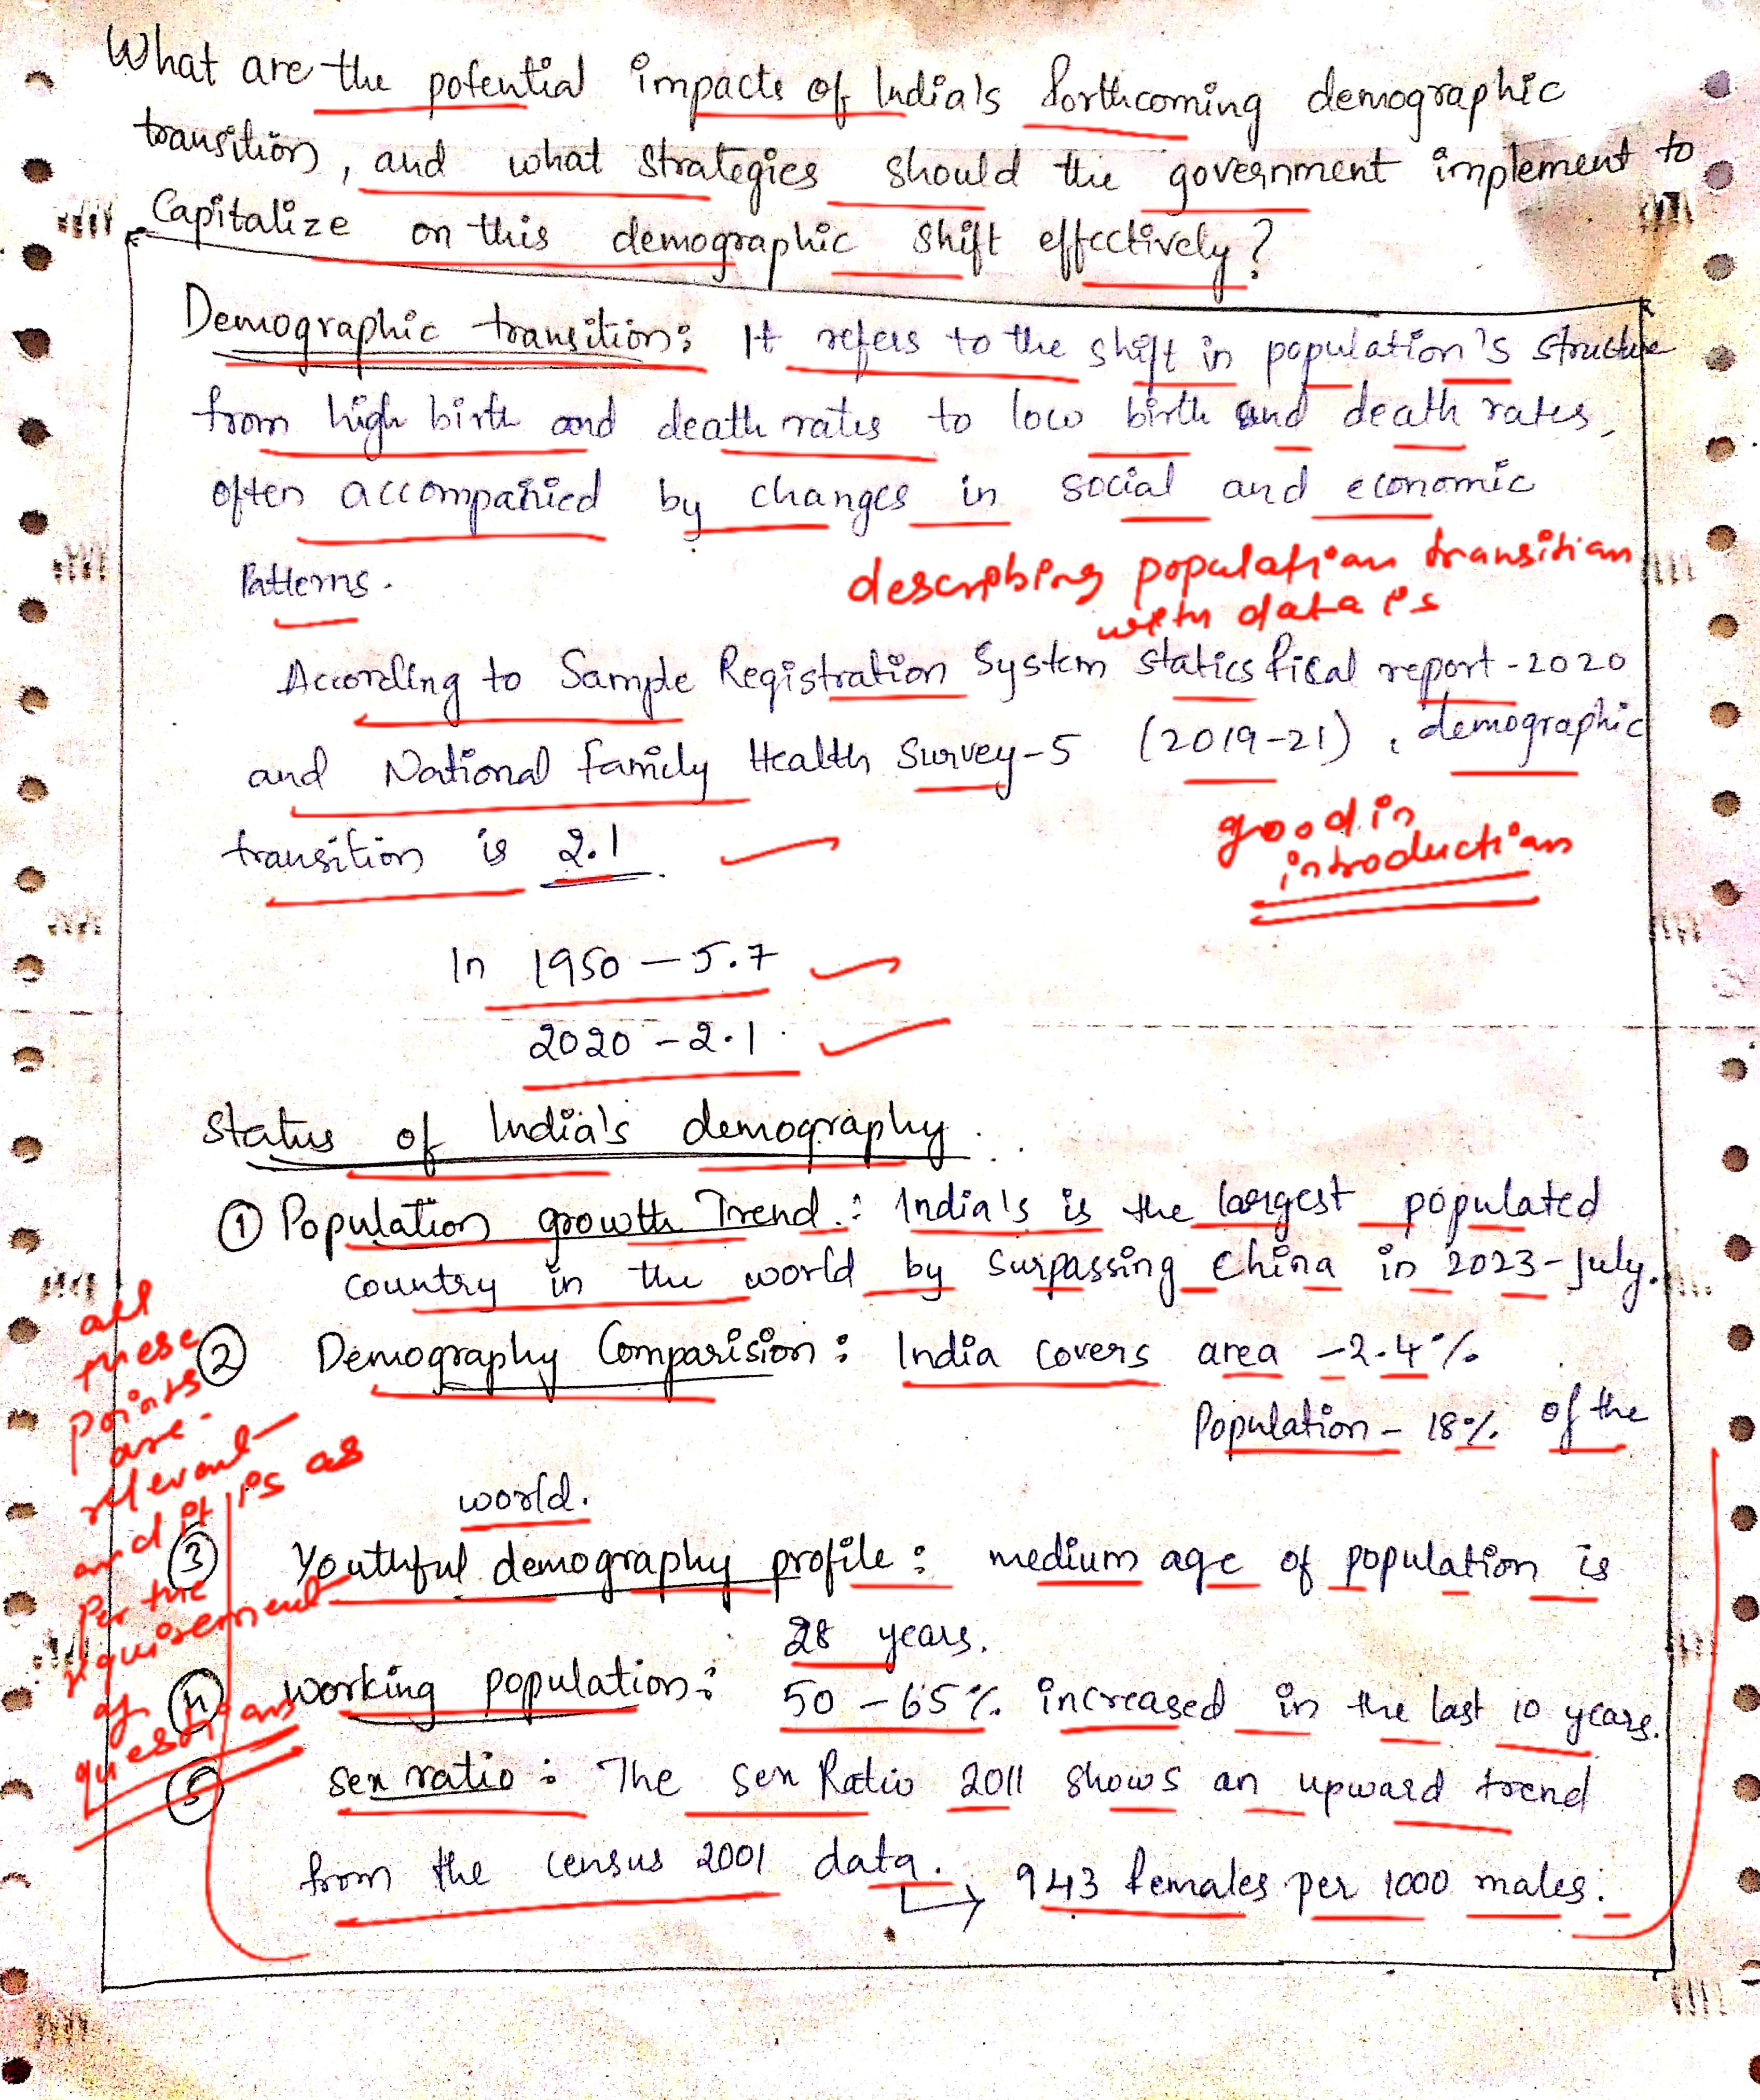 What are the potential impacts of India's forthcoming demographic
transition, and what strategies should the government implement to
Capitalize on this demographic shift effectively?
Demographic transition: It refers to the shift in population's structure
from high birth and death rates to low birth and death rates,
often accompanied by changes in social and economic
Patterns.
describing population transition
with data is
good in
introduction
According to Sample Registration System statics fical report - 2020
and National family Health Survey-5 (2019-21), demographic
transition is 2.1
In 1950 - 5.7
2020 - 2.1
Status of India's demography.
① Population growth Trend.: India's is the largest populated
country in the world by surpassing China in 2023-July.
② Demography Comparision: India covers area - 2.4%
Population - 18% of the
world.
③ Youthful demography profile: medium age of population is
28 years.
④ working population: 50-65% increased in the last 10 years.
⑤ sex ratio: The sex Ratio 2011 shows an upward trend
from the census 2001 data. ↳ 943 females per 1000 males.
all
these
points
are
relevant
and it is as
per the
requirement
of
questions